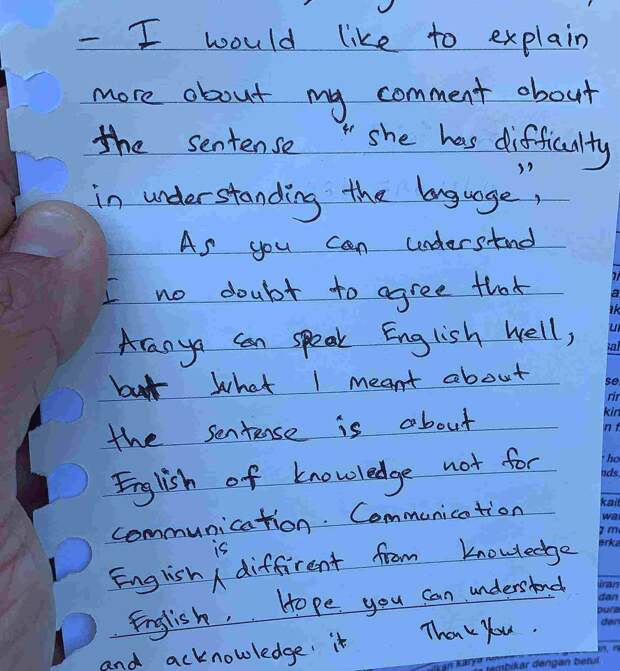 - I would like to explain
more about my comment about
the sentence "she has difficulty
in understanding the language",
As you can understand
I no doubt to agree that
Aranya can speak English well,
but what I meant about
the sentence is about
English of knowledge not for
communication. Communication
English is diffirent from knowledge
English. Hope you can understand
and acknowledge it Thank you.
tembikar dengan betul